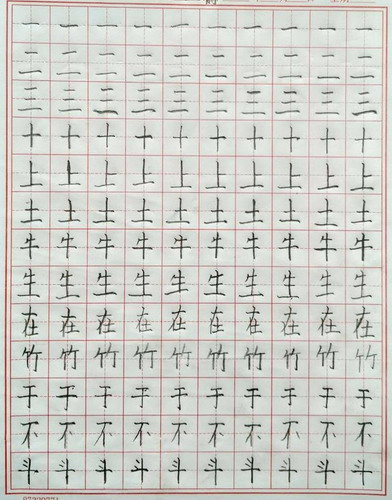 一一一一一一一一一一
二二二二二二二二二二
三三三三三三三三三三
十十十十十十十十十十
上上上上上上上上上上
土土土土土土土土土土
牛牛牛牛牛牛牛牛牛牛
生生生生生生生生生生
在在在在在在在在在在
竹竹竹竹竹竹竹竹竹竹
于于于于于于于于于于
不不不不不不不不不不
斗斗斗斗斗斗斗斗斗斗